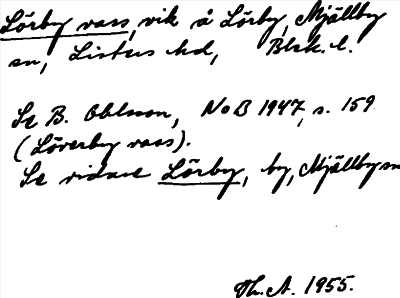 Lörby vass, vik å Lörby, Mjällby
sn, Listers hd, Blek. l.
Se B. Ohlsson, NoB 1947, s. 159.
(Löverby vass).
Se vidare Lörby, by, Mjällby sn
Th. A. 1955.